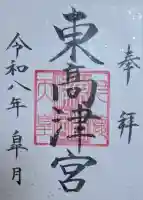 奉拝
東高津宮
令和八年皐月